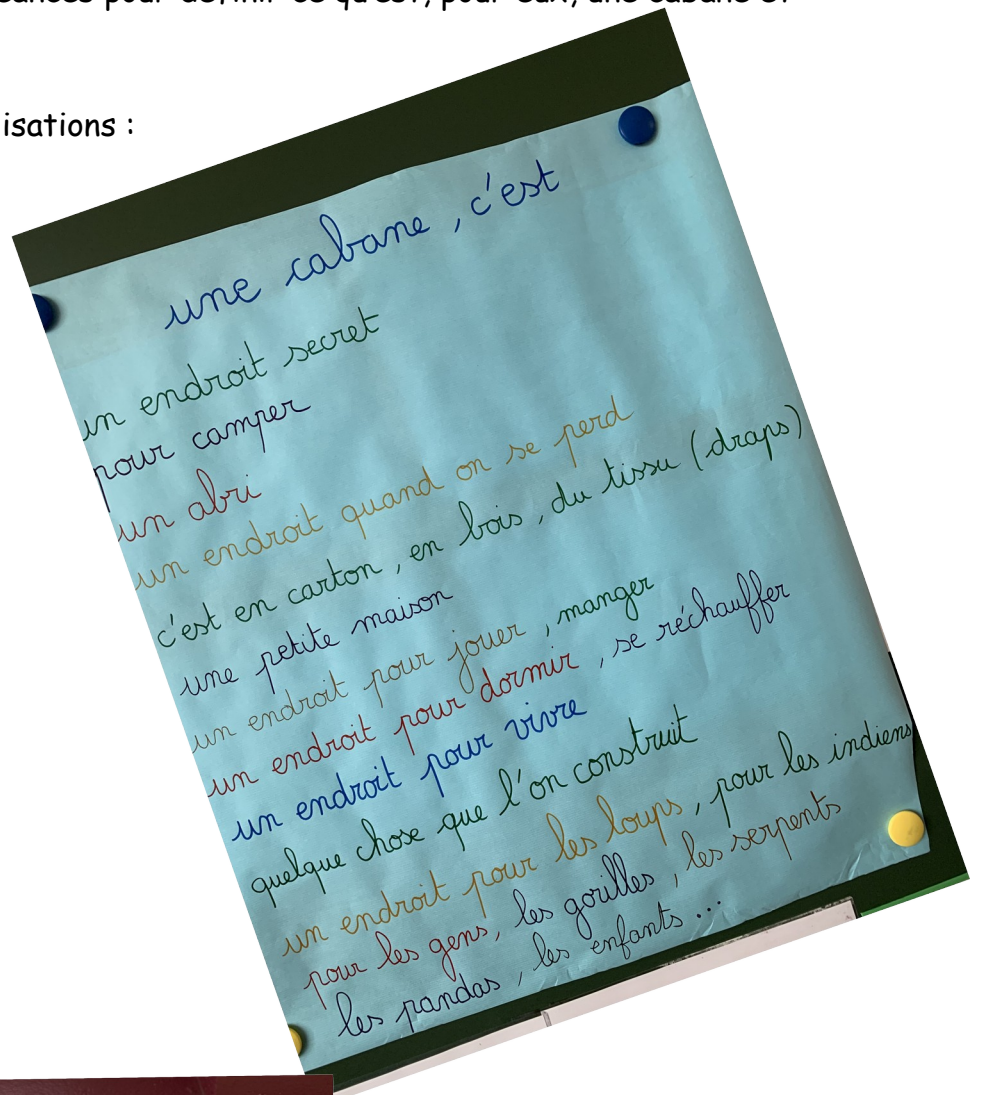 pour définir ce qu'est, pour eux, une cabane et
isations :
une cabane, c'est
un endroit secret
pour camper
un abri
un endroit quand on se perd
c'est en carton, en bois, du tissu (draps)
une petite maison
un endroit pour jouer, manger
un endroit pour dormir, se réchauffer
un endroit pour vivre
quelque chose que l'on construit
un endroit pour les loups, pour les indiens
pour les gens, les gorilles, les serpents
les pandas, les enfants ...